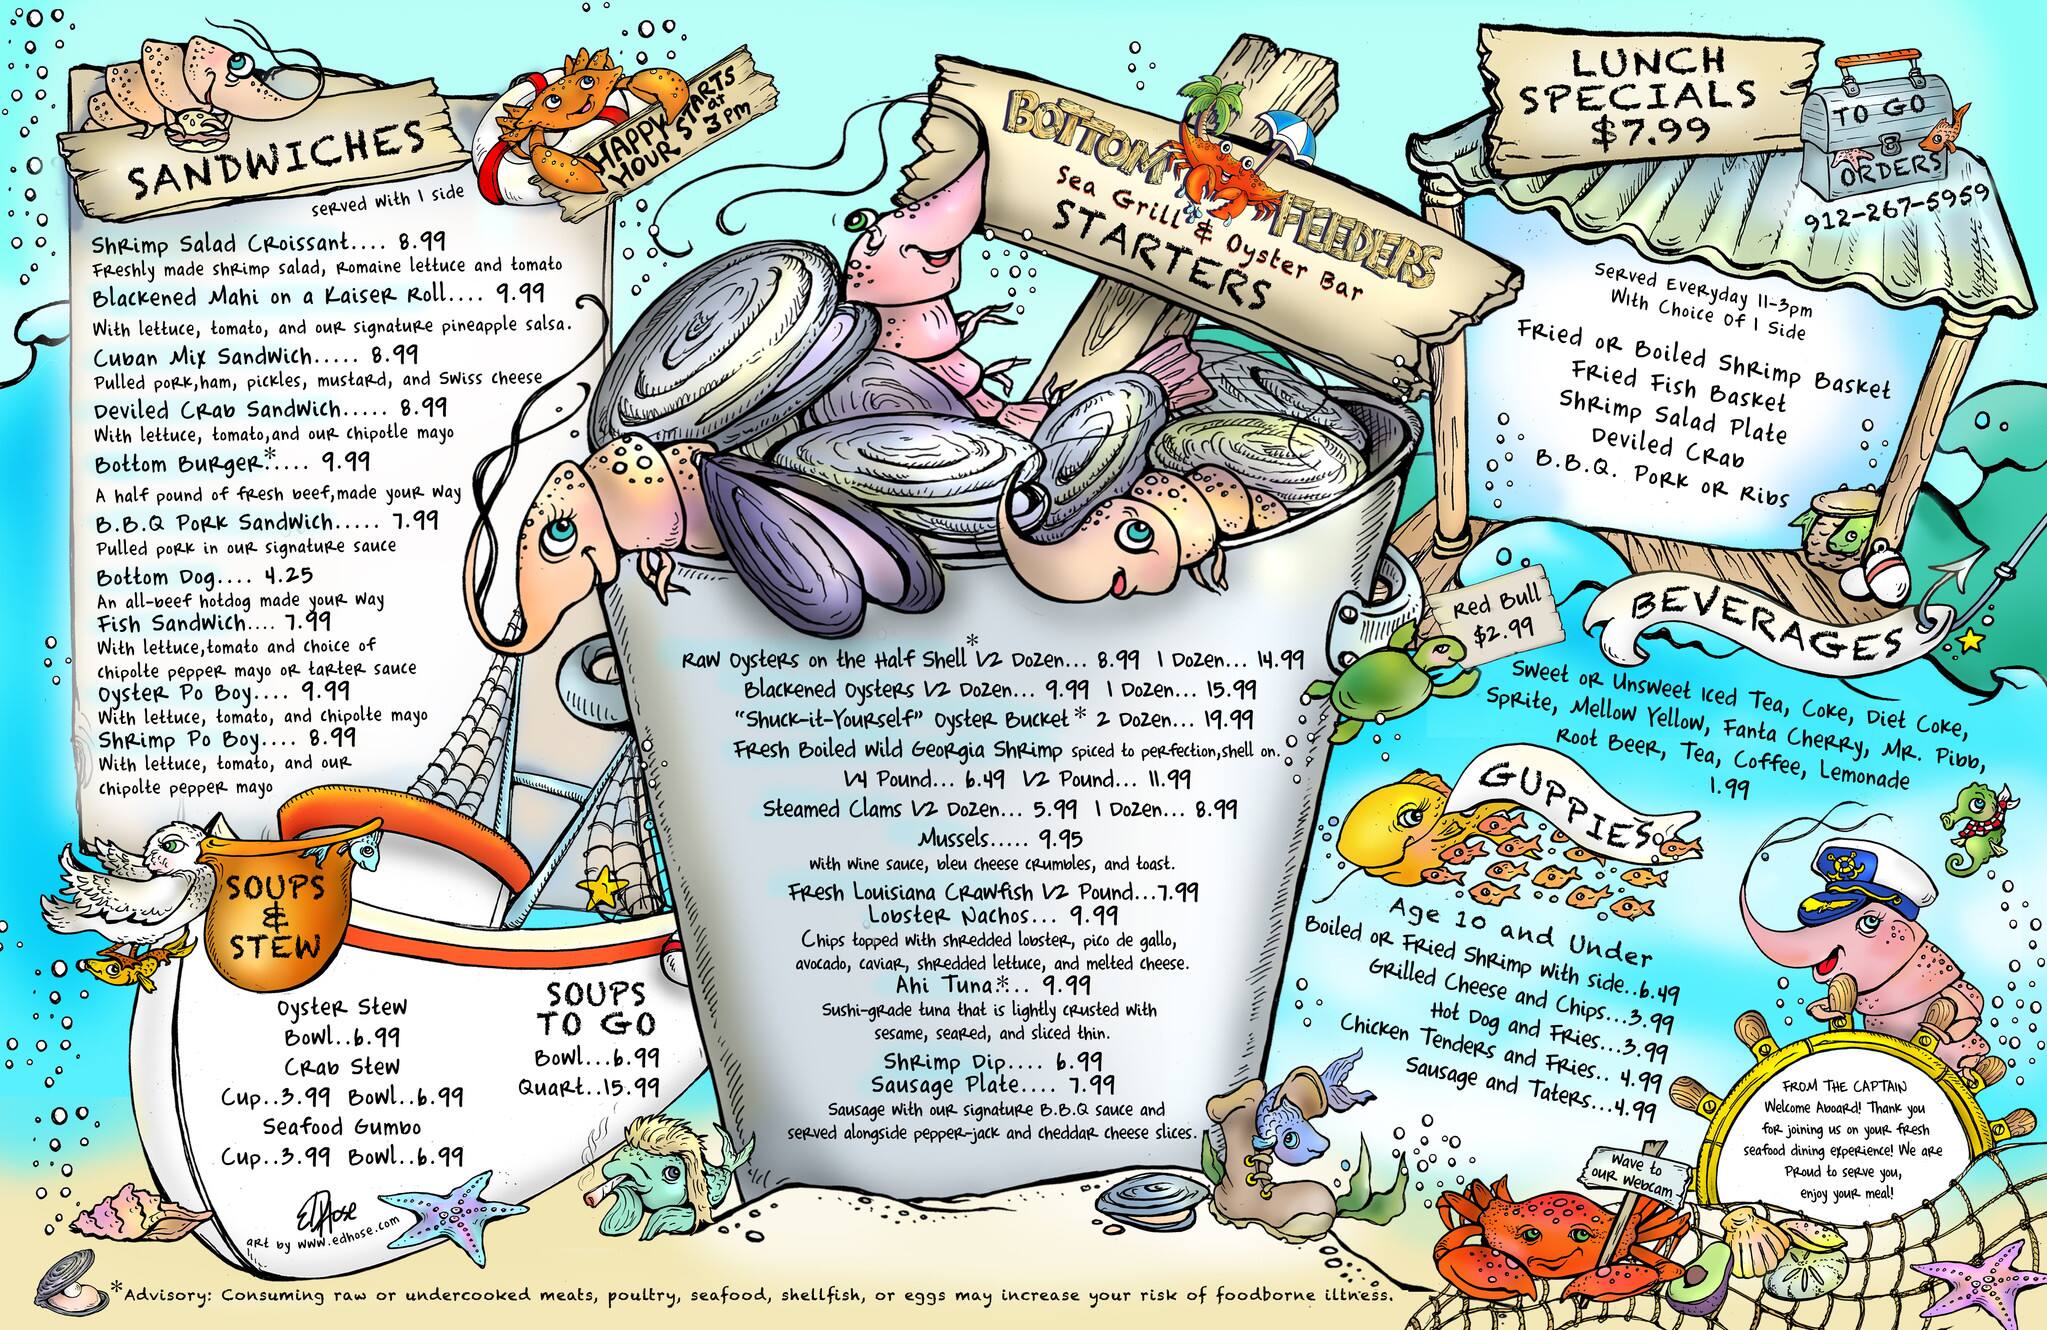 SANDWICHES
served with 1 side
HAPPY HOUR
STARTS at 3 PM
Shrimp Salad Croissant.... 8.99
Freshly made shrimp salad, Romaine lettuce and tomato
Blackened Mahi on a Kaiser Roll.... 9.99
With lettuce, tomato, and our signature pineapple salsa.
Cuban Mix Sandwich..... 8.99
Pulled pork,ham, pickles, mustard, and Swiss cheese
Deviled Crab Sandwich..... 8.99
With lettuce, tomato,and our chipotle mayo
Bottom Burger*.... 9.99
A half pound of fresh beef,made your way
B.B.Q Pork Sandwich..... 7.99
Pulled pork in our signature sauce
Bottom Dog.... 4.25
An all-beef hotdog made your way
Fish Sandwich.... 7.99
With lettuce,tomato and choice of
chipolte pepper mayo or tarter sauce
Oyster Po Boy.... 9.99
With lettuce, tomato, and chipolte mayo
Shrimp Po Boy.... 8.99
With lettuce, tomato, and our
chipolte pepper mayo
SOUPS
&
STEW
Oyster Stew
Bowl..6.99
Crab Stew
Cup..3.99 Bowl..6.99
Seafood Gumbo
Cup..3.99 Bowl..6.99
SOUPS
TO GO
Bowl...6.99
Quart..15.99
Ed Hose
art by www.edhose.com
BOTTOM FEEDERS
Sea Grill & Oyster Bar
STARTERS
Raw Oysters on the Half Shell* 1/2 Dozen... 8.99 1 Dozen... 14.99
Blackened Oysters 1/2 Dozen... 9.99 1 Dozen... 15.99
"Shuck-it-Yourself" Oyster Bucket* 2 Dozen... 19.99
Fresh Boiled Wild Georgia Shrimp spiced to perfection,shell on.
1/4 Pound... 6.49 1/2 Pound... 11.99
Steamed Clams 1/2 Dozen... 5.99 1 Dozen... 8.99
Mussels..... 9.95
with wine sauce, bleu cheese crumbles, and toast.
Fresh Louisiana Crawfish 1/2 Pound...7.99
Lobster Nachos... 9.99
Chips topped with shredded lobster, pico de gallo,
avocado, caviar, shredded lettuce, and melted cheese.
Ahi Tuna*.. 9.99
Sushi-grade tuna that is lightly crusted with
sesame, seared, and sliced thin.
Shrimp Dip.... 6.99
Sausage Plate.... 7.99
Sausage with our signature B.B.Q sauce and
served alongside pepper-jack and cheddar cheese slices.
LUNCH
SPECIALS
$7.99
TO GO
ORDERS
912-267-5959
Served Everyday 11-3pm
With Choice Of 1 Side
Fried or Boiled Shrimp Basket
Fried Fish Basket
Shrimp Salad Plate
Deviled Crab
B.B.Q. Pork or Ribs
Red Bull
$2.99
BEVERAGES
Sweet or Unsweet Iced Tea, Coke, Diet Coke,
Sprite, Mellow Yellow, Fanta Cherry, Mr. Pibb,
Root Beer, Tea, Coffee, Lemonade
1.99
GUPPIES
Age 10 and Under
Boiled or Fried Shrimp with side..6.49
Grilled Cheese and Chips...3.99
Hot Dog and Fries...3.99
Chicken Tenders and Fries.. 4.99
Sausage and Taters...4.99
Wave to
our webcam
FROM THE CAPTAIN
Welcome Aboard! Thank you
for joining us on your fresh
seafood dining experience! We are
Proud to serve you,
enjoy your meal!
*Advisory: Consuming raw or undercooked meats, poultry, seafood, shellfish, or eggs may increase your risk of foodborne illness.